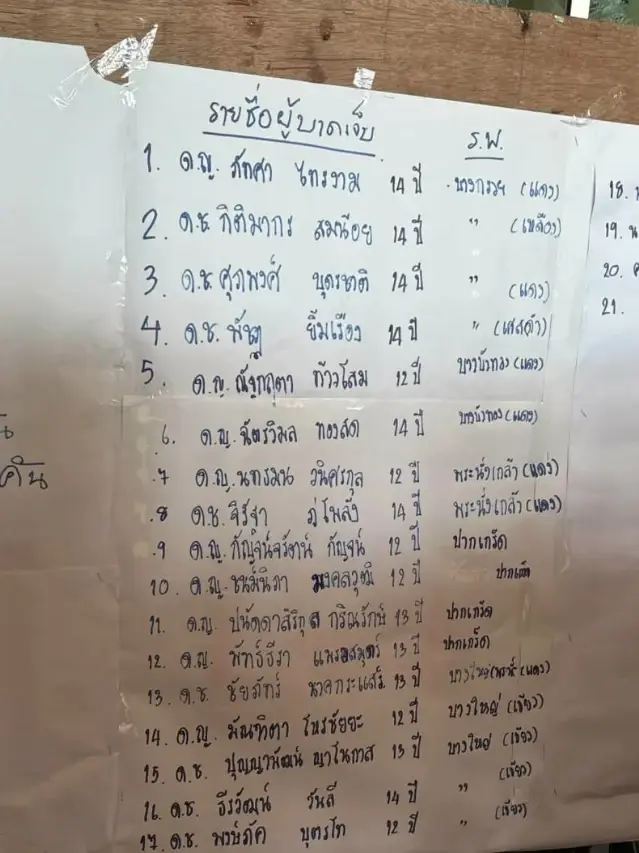 รายชื่อผู้บาดเจ็บ ร.พ.
1. ด.ญ. ภัทศา ไทรงาม 14 ปี บางกรวย (แดง)
2. ด.ช. กิติมากร สมน้อย 14 ปี " (เหลือง)
3. ด.ช. ศุภพงศ์ บุตรชาติ 14 ปี " (แดง)
4. ด.ช. พัชฎ ยิ้มเรือง 14 ปี "
5. ด.ญ. ท้าวโสม 12 ปี บางบัวทอง (แดง)
6. ด.ญ. ฉัตรวิมล ทองสด 14 ปี บางบัวทอง (แดง)
7 ด.ญ. นทรมน วนิศรกุล 12 ปี พระนั่งเกล้า (แดง)
8 ด.ช. จิรัฐา ภู่โพลัง 14 ปี พระนั่งเกล้า (แดง)
9 ด.ญ. กัญจน์จรัตน์ กัญจน์ 12 ปี ปากเกร็ด
10. ด.ญ. ชนม์นิภา มงคลวุฒิ 12 ปี ปากเกร็ด
11. ด.ญ. ปนัดดาสิริกุล กริณรักษ์ 13 ปี ปากเกร็ด
12. ด.ญ. พัทธ์ธีรา แพรสมุทร์ 13 ปี ปากเกร็ด
13. ด.ช. ชัยภัทร์ นาคกระแสร์ 13 ปี บางใหญ่ แดง)
14. ด.ญ. มัณฑิตา โหรชัยยะ 12 ปี บางใหญ่ (เขียว)
15. ด.ช. ปุญญาพัฒน์ ญาโนภาส 13 ปี บางใหญ่ (เขียว)
16. ด.ช. ธีรวัฒน์ วันลี 14 ปี " (เขียว)
17. ด.ช. พงษ์ภัค บุตรโท 12 ปี " (เขียว)
18.
19. น
20.
21.
คัน